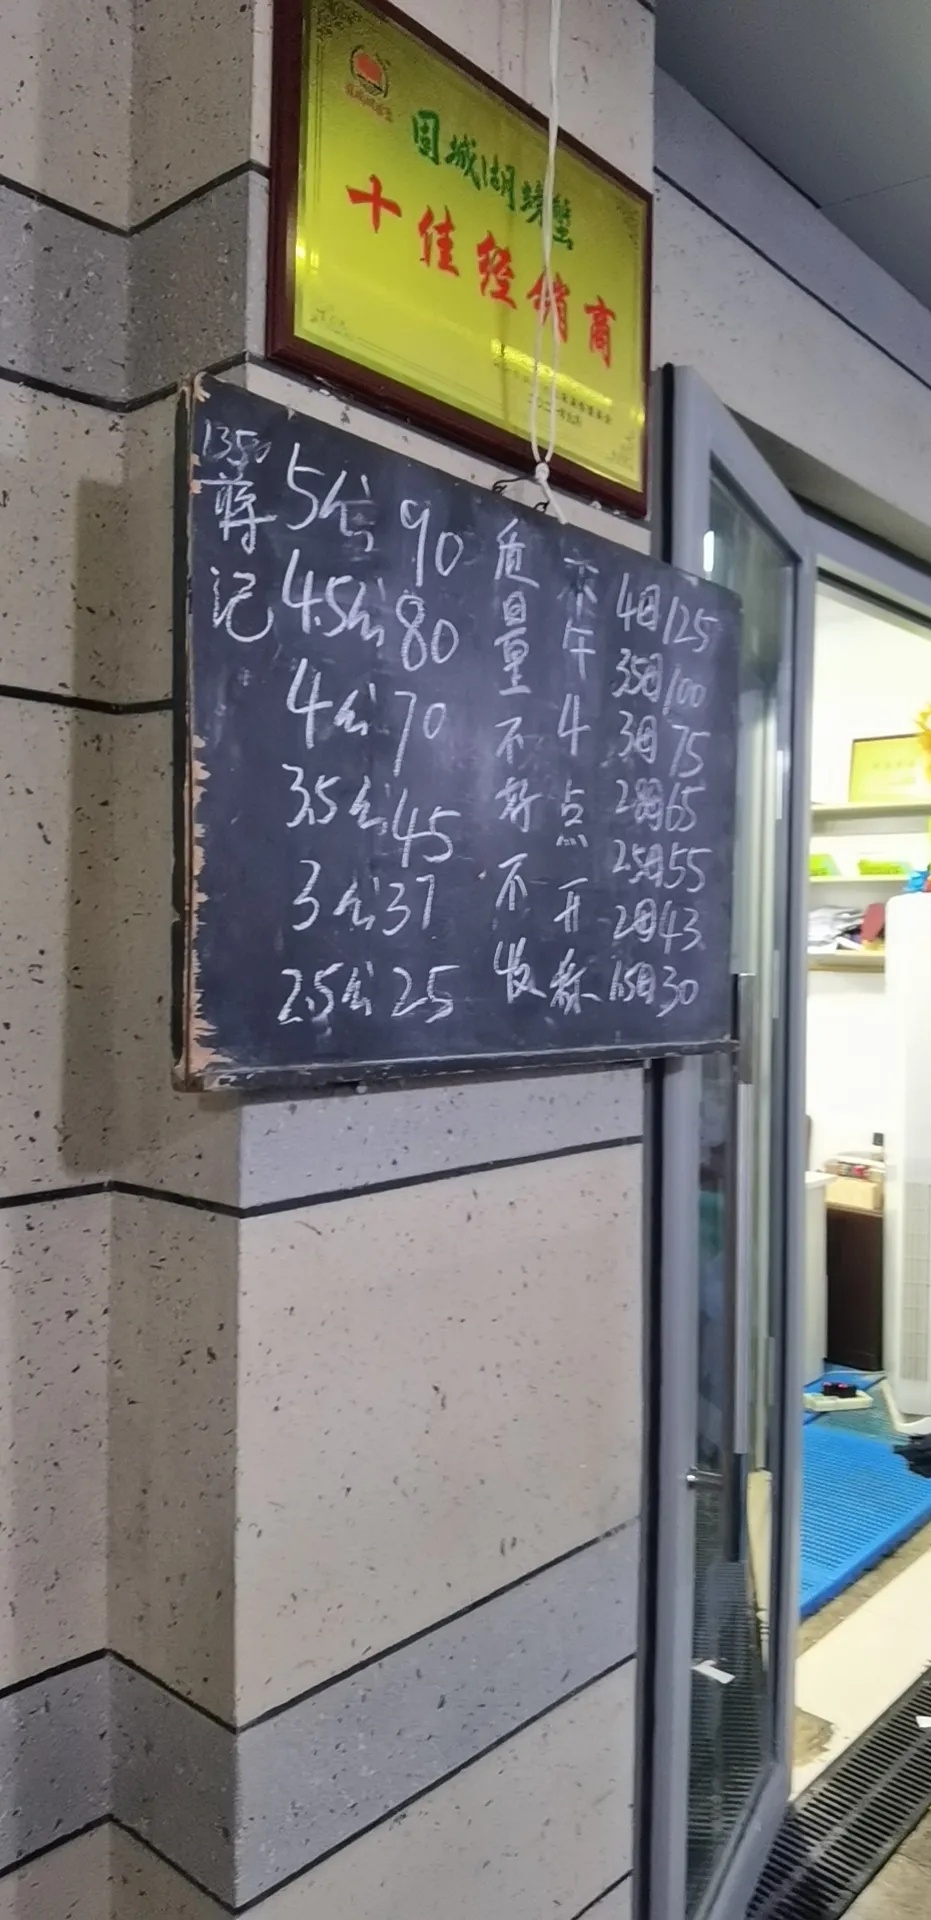 固城湖螃蟹
十佳经销商
蒋记
5公 90
4.5公 80
4公 70
3.5公 45
3公 37
2.5公 25
质量不好不收
下午4点开称
4母 125
3.5母 100
3母 75
2.8母 65
2.5母 55
2母 43
1.5母 30